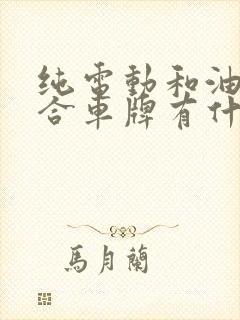 纯電動和油
合車牌有什
馬月蘭